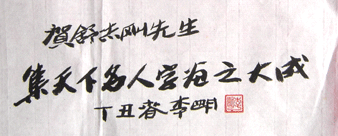 賀舒剛先生
集天下名人字之大成
丁丑春李明